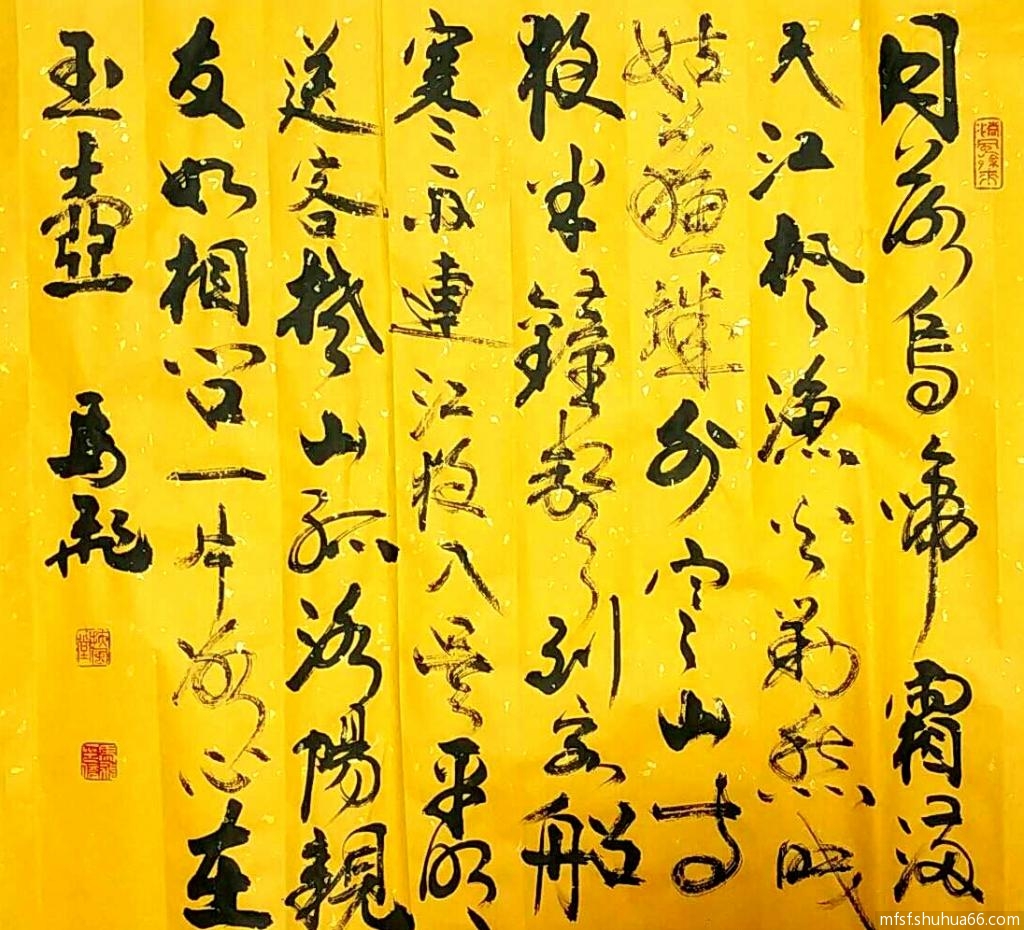 月落烏啼霜满
天江枫漁火對愁眠
姑蘇城外寒山寺
夜半鐘聲到客船
寒雨連江夜入吴平明
送客楚山孤洛陽親
友如相问一片冰心在
玉壺 馬飛
mfsf.shuhua66.com